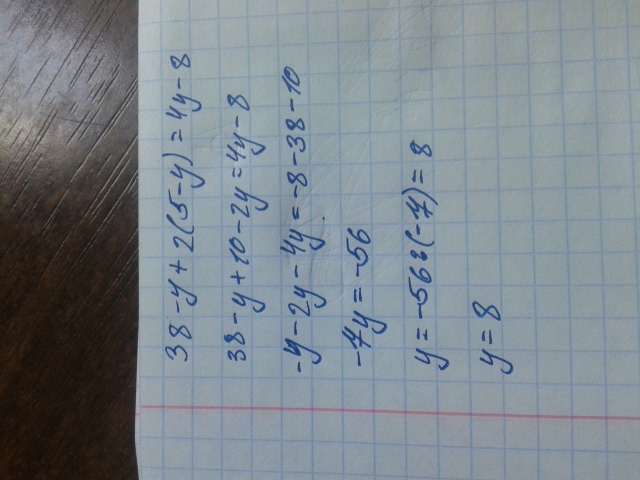 38-y+2(5-y)=4y-8
38-y+10-2y=4y-8
-y-2y-4y=-8-38-10
-7y=-56
y=-56:(-7)=8
y=8